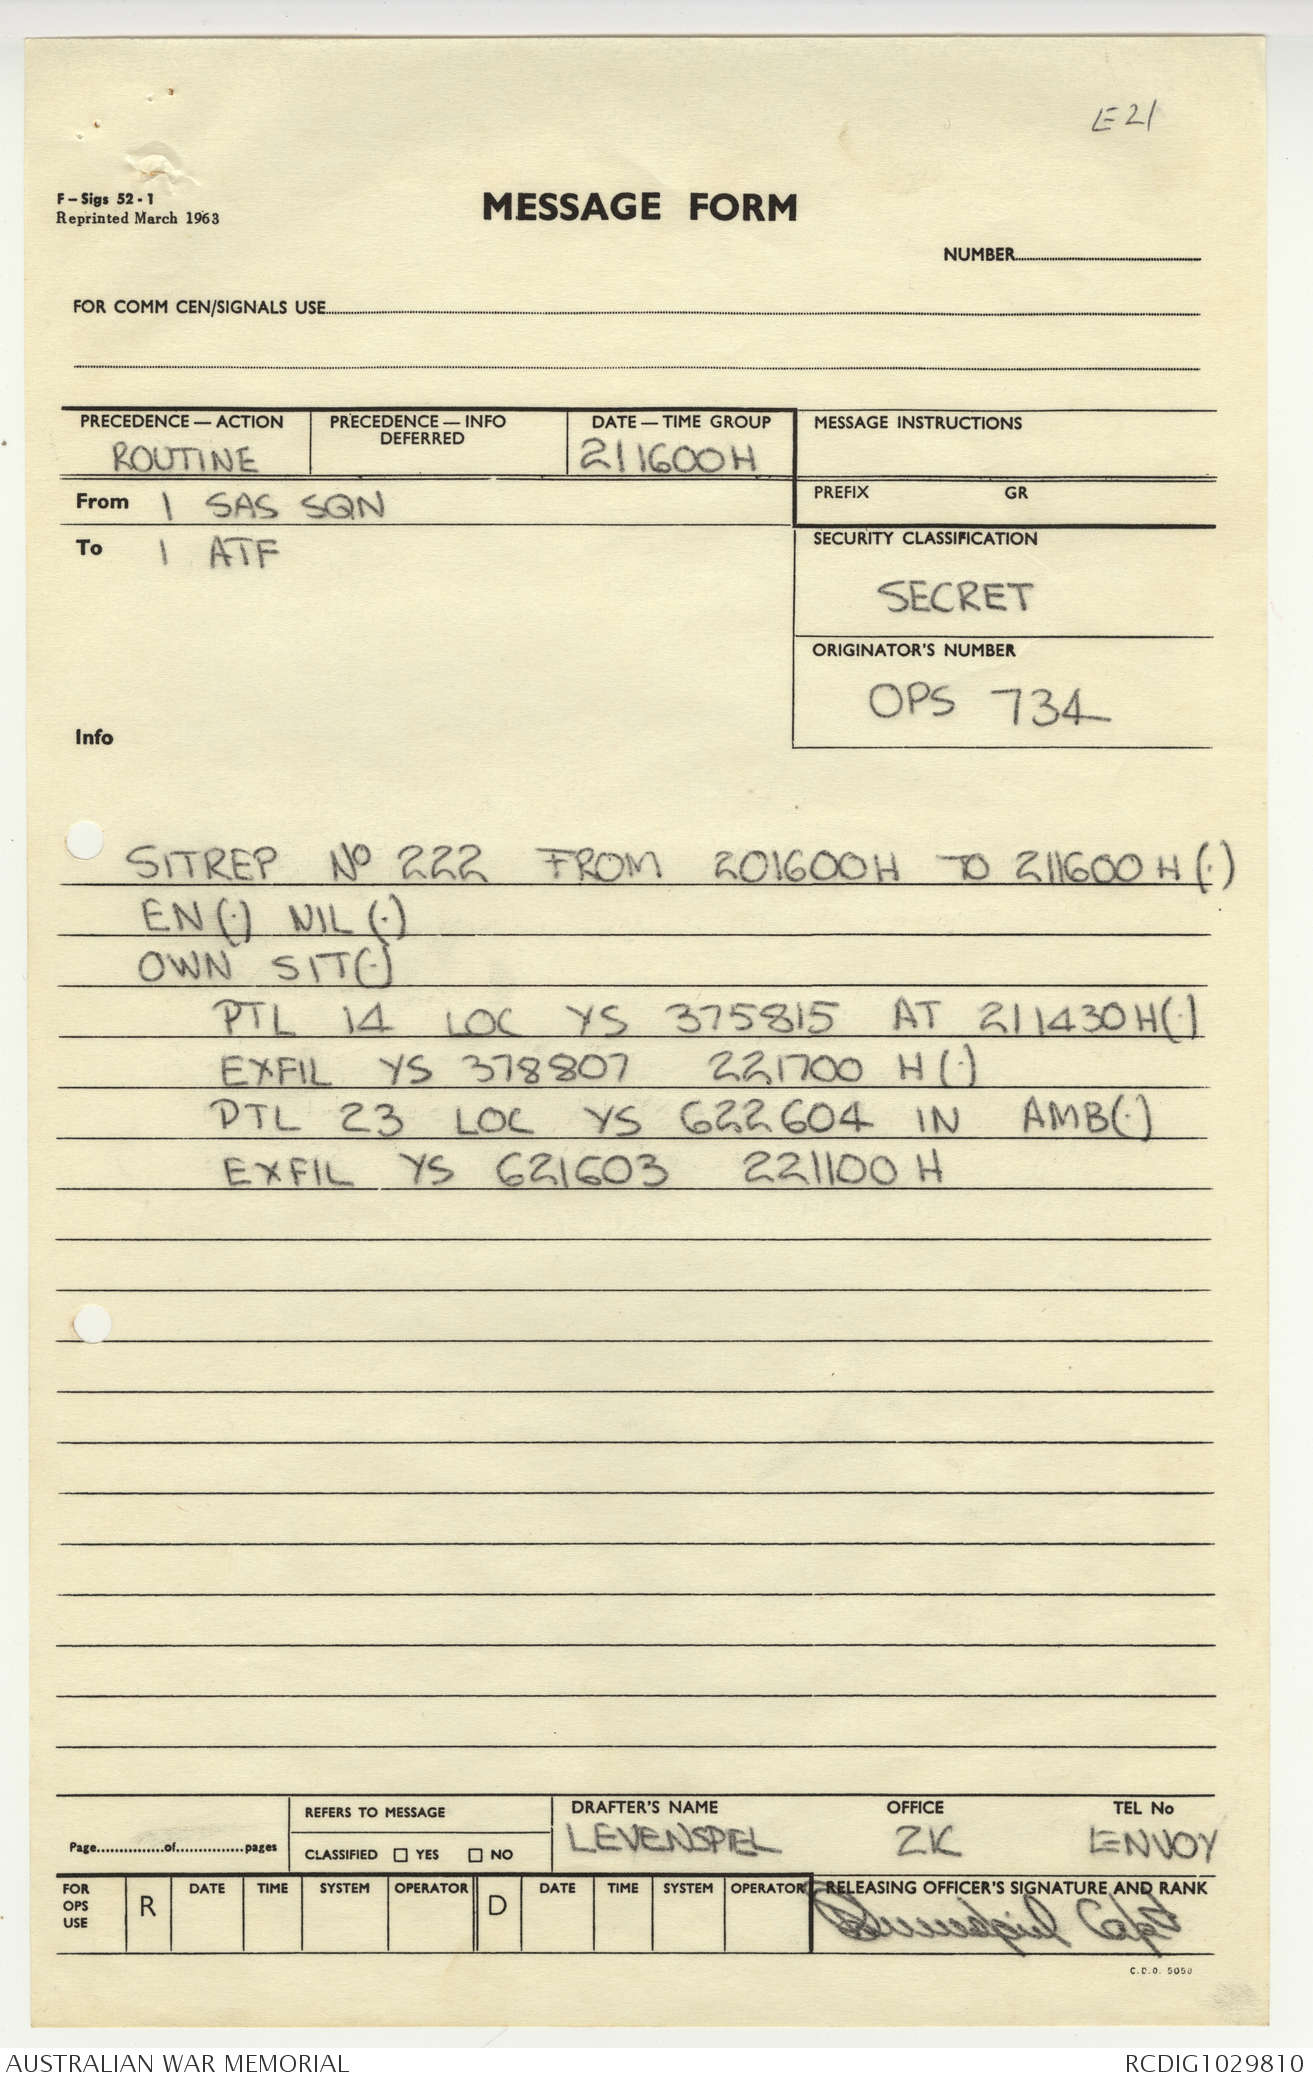 E21
F - Sigs 52 - 1
Reprinted March 1963
MESSAGE FORM
NUMBER
FOR COMM CEN/SIGNALS USE
PRECEDENCE — ACTION
ROUTINE
PRECEDENCE — INFO
DEFERRED
DATE — TIME GROUP
211600H
MESSAGE INSTRUCTIONS
From 1 SAS SQN
PREFIX GR
To 1 ATF
SECURITY CLASSIFICATION
SECRET
ORIGINATOR'S NUMBER
OPS 734
Info
SITREP No 222 FROM 201600H TO 211600H(.)
EN(.) NIL(.)
OWN SIT(.)
PTL 14 LOC YS 375815 AT 211430H(.)
EXFIL YS 378807 221700 H(.)
PTL 23 LOC YS 622604 IN AMB(.)
EXFIL YS 621603 221100 H
Page of pages
REFERS TO MESSAGE
CLASSIFIED YES NO
DRAFTER'S NAME
LEVENSPIEL
OFFICE
2K
TEL No
ENVOY
FOR OPS USE
R DATE TIME SYSTEM OPERATOR
D DATE TIME SYSTEM OPERATOR
RELEASING OFFICER'S SIGNATURE AND RANK
Capt
C.D.O. 5050
AUSTRALIAN WAR MEMORIAL
RCDIG1029810